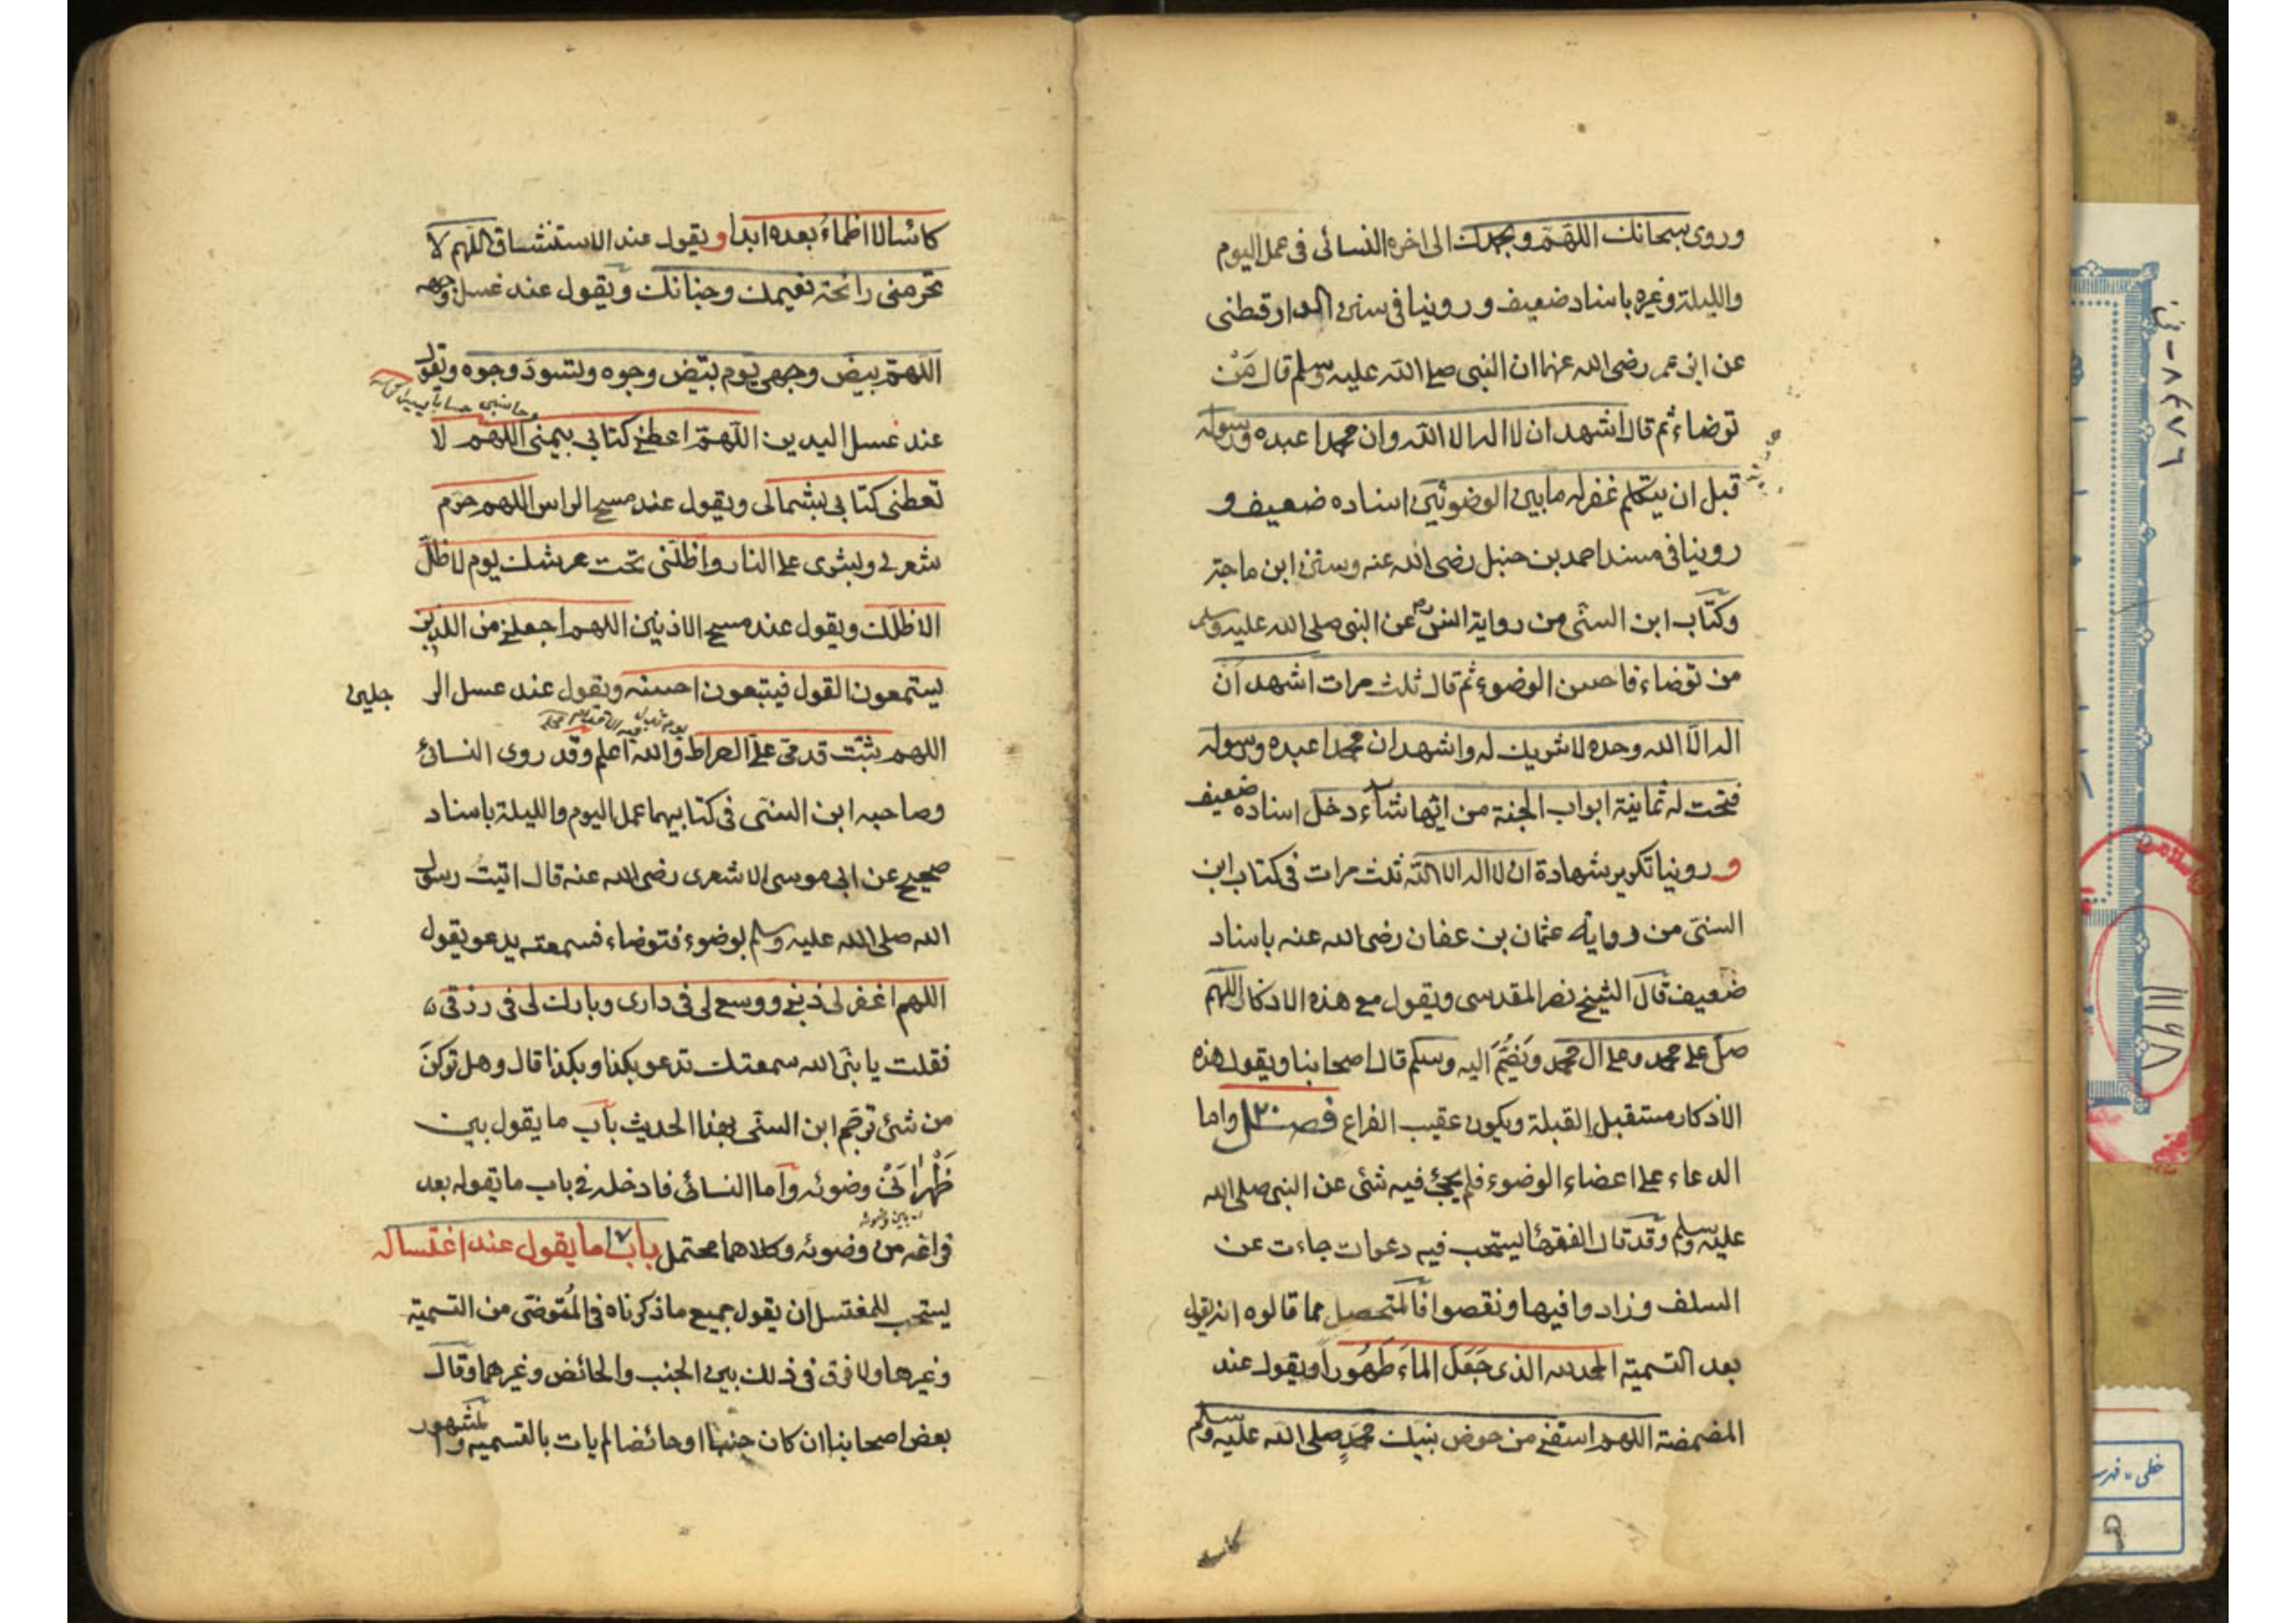 وروى سبحانك اللهم وبحمدك الى اخره النسائى فى عمل اليوم
والليلة وغيره باسناد ضعيف وروينا فى سنن الدارقطنى
عن ابن عمر رضى الله عنهما ان النبى صلى الله عليه وسلم قال مَنْ
توضاء ثم قال اشهد ان لا اله الا الله وان محمدا عبده ورسوله
قبل ان يتكلم غفر له ما بين الوضوئين اسناده ضعيف و
روينا فى مسند احمد بن حنبل رضى الله عنه وسنن ابن ماجة
وكتاب ابن السنّى من رواية انس رض عن النبى صلى الله عليه وسلم
من توضاء فاحسن الوضوء ثم قال ثلث مرات اشهد ان
اله الّا الله وحده لا شريك له واشهد ان محمدا عبده ورسوله
فتحت له ثمانية ابواب الجنة من ايّها شاء دخل اسناده ضعيف
و روينا تكرير شهادة ان لا اله الا الله ثلث مرات فى كتاب ابن
السنى من رواية عثمان بن عفان رضى الله عنه باسناد
ضعيف قال الشيخ نصر المقدسى ويقول مع هذه الاذكار اللهم
صل على محمد وعلى ال محمد وَيَضُمَّ اليه وسلم قال اصحابنا ويقول هذه
الأذكار مستقبل القبلة ويكون عقيب الفراغ فصل ٢٠ واما
الدعاء على اعضاء الوضوء فلم يجئ فيه شئ عن النبى صلى الله
عليه وسلم وقد قال الفقهاء يستحب فيه دعوات جاءت عن
السلف وزادوا فيها ونقصوا فالمتحصل مما قالوه انه يقول
بعد التسمية الحمد لله الذى جَعَلَ الماءَ طَهُوراً ويقول عند
المضمضة اللهم اسقنى من حوض نبيك محمدٍ صلى الله عليه وسلم
كاسا
كاسًا لا اظماءُ بعده ابدا ويقول عند الاستنشاق اللهم لا
تحرمنى رائحة نعيمك وجنانك ويقول عند غسل وجهه
اللهمّ بيض وجهى يوم تبيّض وجوه وتسودّ وجوه ويقول
وحاسبنى حسابا يسيرا
عند غسل اليدين اللهمّ اعطنى كتابى بيمنى اللهم لا
تعطنى كتابى بشمالى ويقول عند مسح الراس اللهم حرم
شعرى وبشرى على النار واظلّنى تحت عرشك يوم لا ظلّ
الا ظلّك ويقول عند مسح الاذنين اللهم اجعلنى من الذين
يستمعون القول فيتبعون احسنه ويقول عند غسل الر جلين
يوم تزل فيه الاقدام
اللهم ثبّت قدمى على الصراط والله اعلم وقد روى النسائى
وصاحبه ابن السنى فى كتابيهما عمل اليوم والليلة باسناد
صحيح عن ابى موسى الاشعرى رضى الله عنه قال اتيت رسول
الله صلى الله عليه وسلم بوضوء فتوضاء فسمعته يدعو يقول
اللهم اغفر لى ذنبى ووسع لى فى دارى وبارك لى فى رزقى
فقلت يا نبىّ الله سمعتك تدعو بكذا وبكذا قال وهل تركنَ
من شئ ترجم ابن السنى بهذا الحديث باب ما يقول بين
ظَهْرانَىْ وضوئه وأما النسائى فادخله فى باب ما يقوله بعد
فراغه من وضوئه وكلاهما محتمل باب ما يقول عند اغتساله
يستحب للمغتسل ان يقول جميع ما ذكرناه فى المُتوضى من التسمية
وغيرها ولا فرق فى ذلك بين الجنب والحائض وغيرهما وقال
بعض اصحابنا ان كان جنبا او حائضا لم يات بالتسمية والمشهور
٨٤٧٦
خطى - فهرست